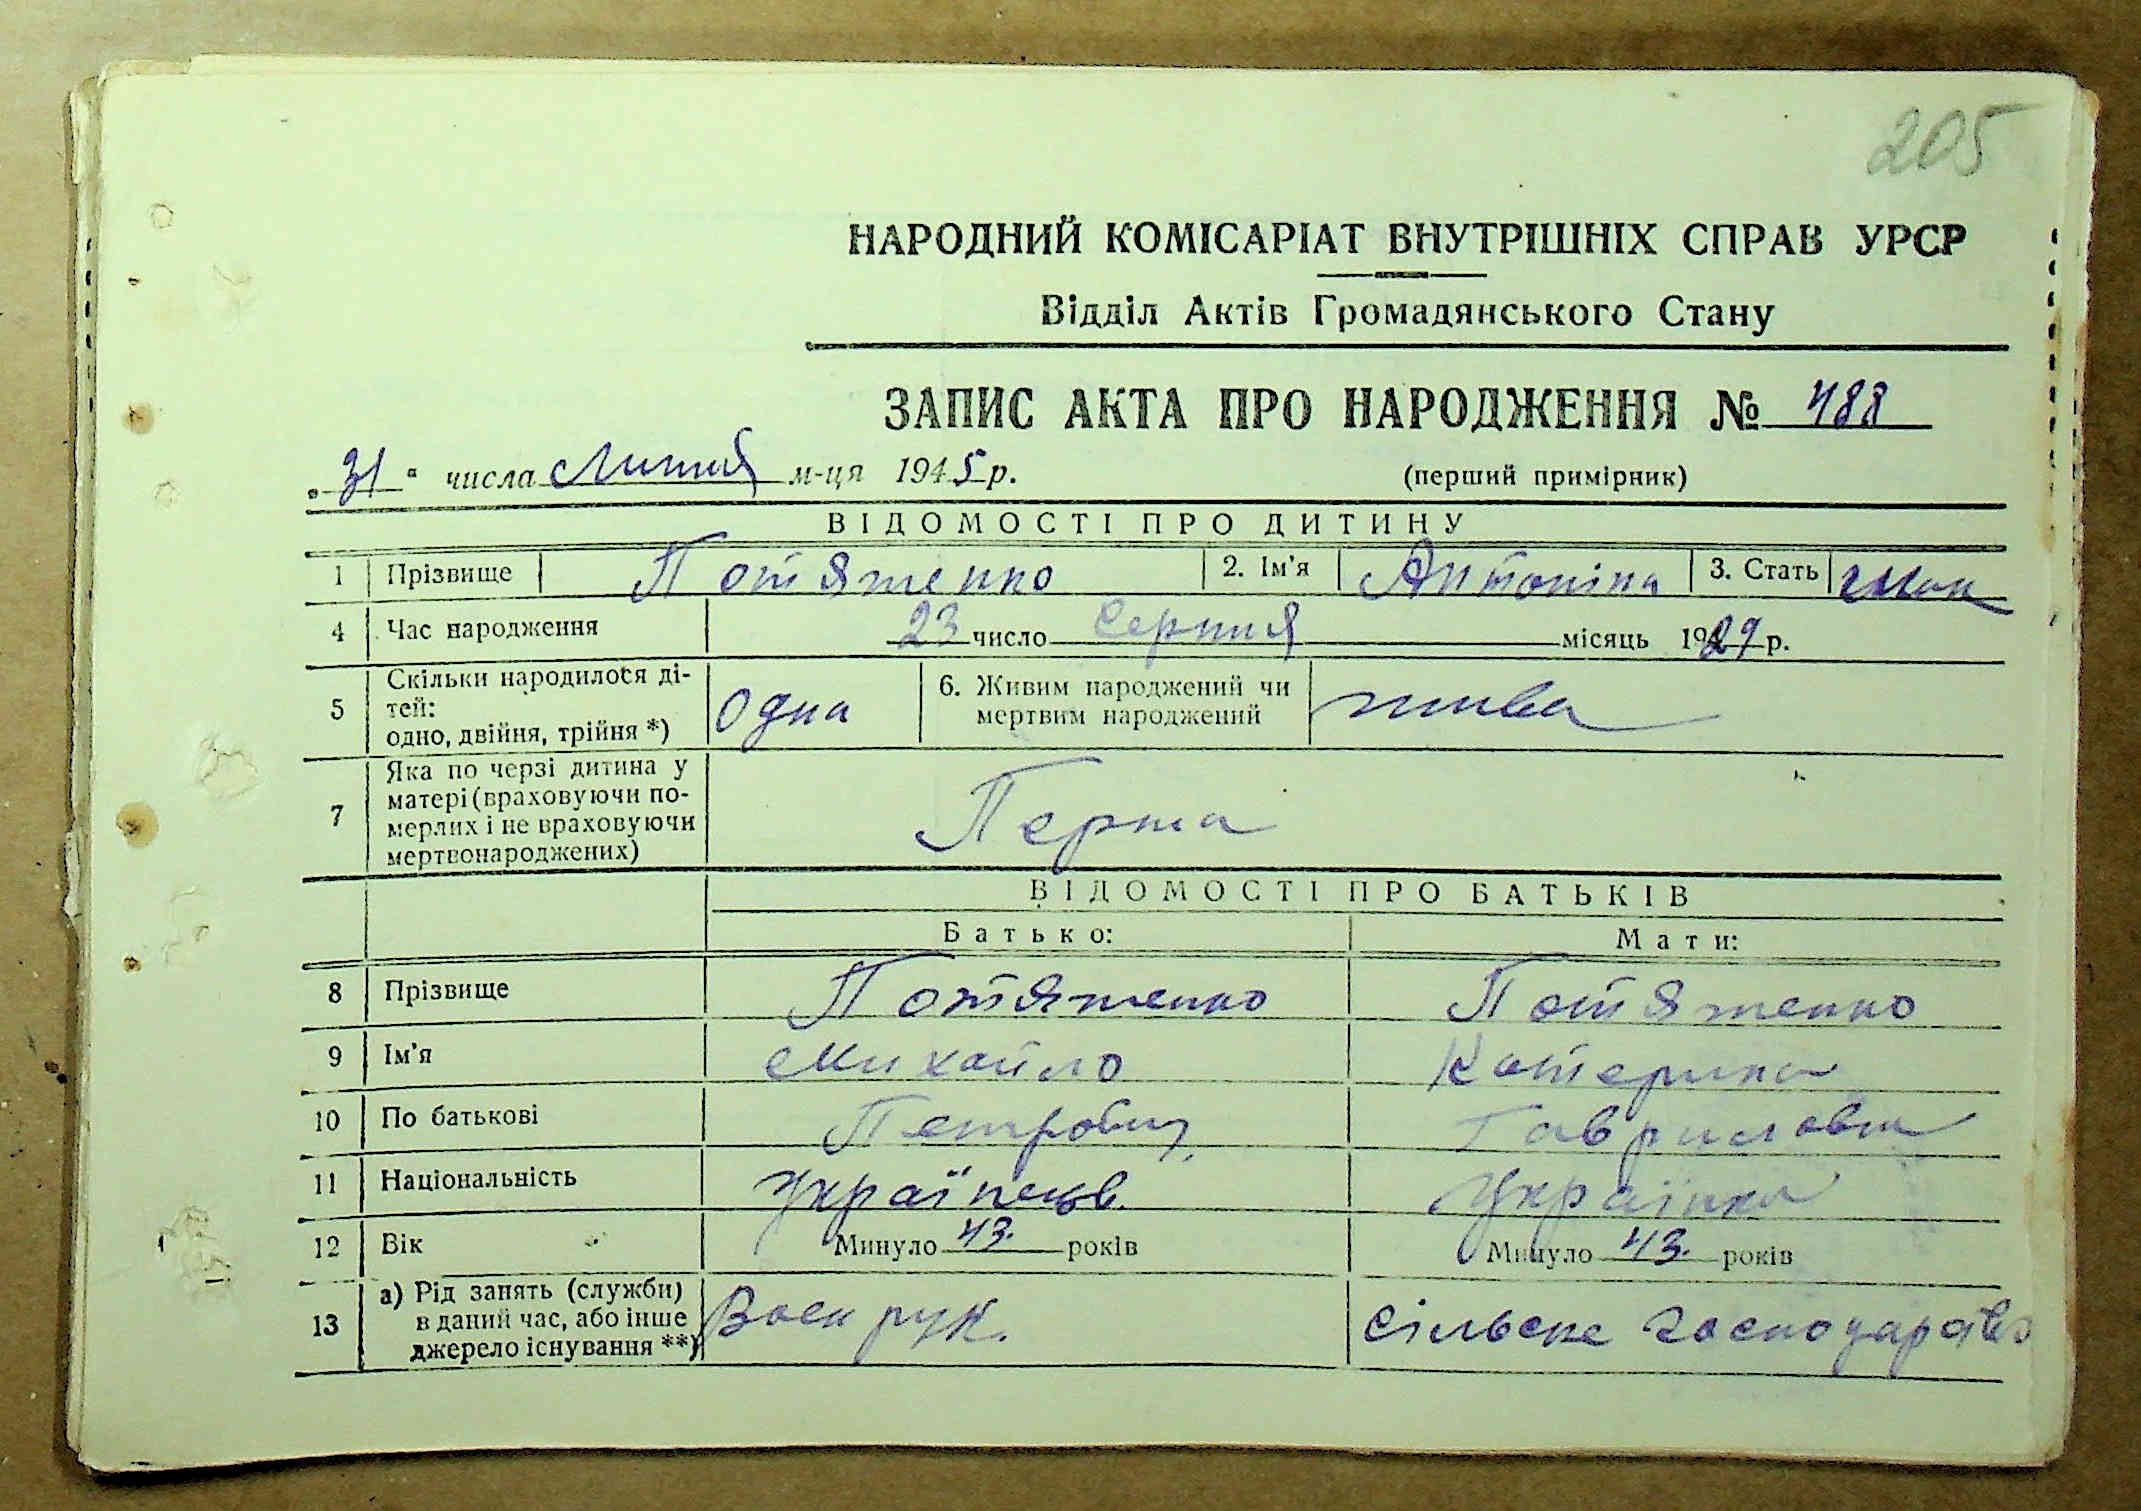 205
НАРОДНИЙ КОМІСАРІАТ ВНУТРІШНІХ СПРАВ УРСР
Відділ Актів Громадянського Стану
ЗАПИС АКТА ПРО НАРОДЖЕННЯ № 488
„31“ числа Липня м-ця 1945 р. (перший примірник)
ВІДОМОСТІ ПРО ДИТИНУ
1 Прізвище Потяженко 2. Ім'я Антоніна 3. Стать жін
4 Час народження 23 число Серпня місяць 1929 р.
5 Скільки народилося ді-
тей:
одно, двійня, трійня *) Одна
6. Живим народжений чи
мертвим народжений жива
7 Яка по черзі дитина у
матері (враховуючи по-
мерлих і не враховуючи
мертвонароджених) Перша
ВІДОМОСТІ ПРО БАТЬКІВ
Батько: Мати:
8 Прізвище Потяженко Потяженко
9 Ім'я Михайло Катерина
10 По батькові Петрович Гавриловна
11 Національність Українець Українка
12 Вік Минуло 43 років Минуло 43. років
13 а) Рід занять (служби)
в даний час, або інше
джерело існування **) Воєн рук. сільське господарство